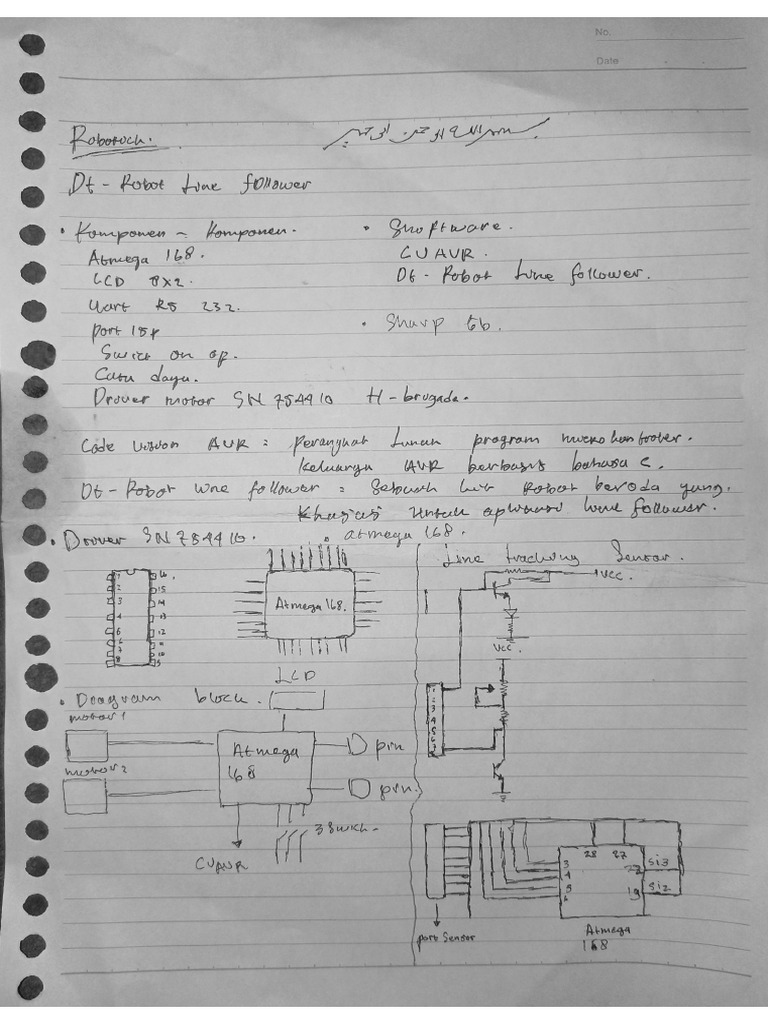 No.
Date
Robotech.
بسم الله الرحمن الرحيم
Dt - Robot Line follower
• Komponen - Komponen.
Atmega 168.
LCD 8x2.
Uart RS 232.
port ISP
Switc on of.
Catu daya.
Drover motor SN 754410 H-brigada.
• Shoftware.
CVAVR.
Dt - Robot Line follower.
• Sharp
Code Vision AVR = perangkat Lunak program mickokontroler.
Keluarga AVR berbasis bahasa C.
Dt - Robot Line follower = Sebuah kit Robot beroda yang.
Khusus Untuk aplikasi line follower.
• Drover SN 754410.
1
2
3
4
6
7
8
16.
15
14
13
12
11
10
9
• atmega 168.
Atmega 168.
• Diagram block.
LCD
motor 1
motor 2
Atmega
168
pin
pin.
CVAVR
3 Switch
Line tracking Sensor.
+VCC.
VCC.
1
2
3
4
5
6
7
port Sensor
3
4
5
6
28
27
19
Si3
Si2
Atmega
168